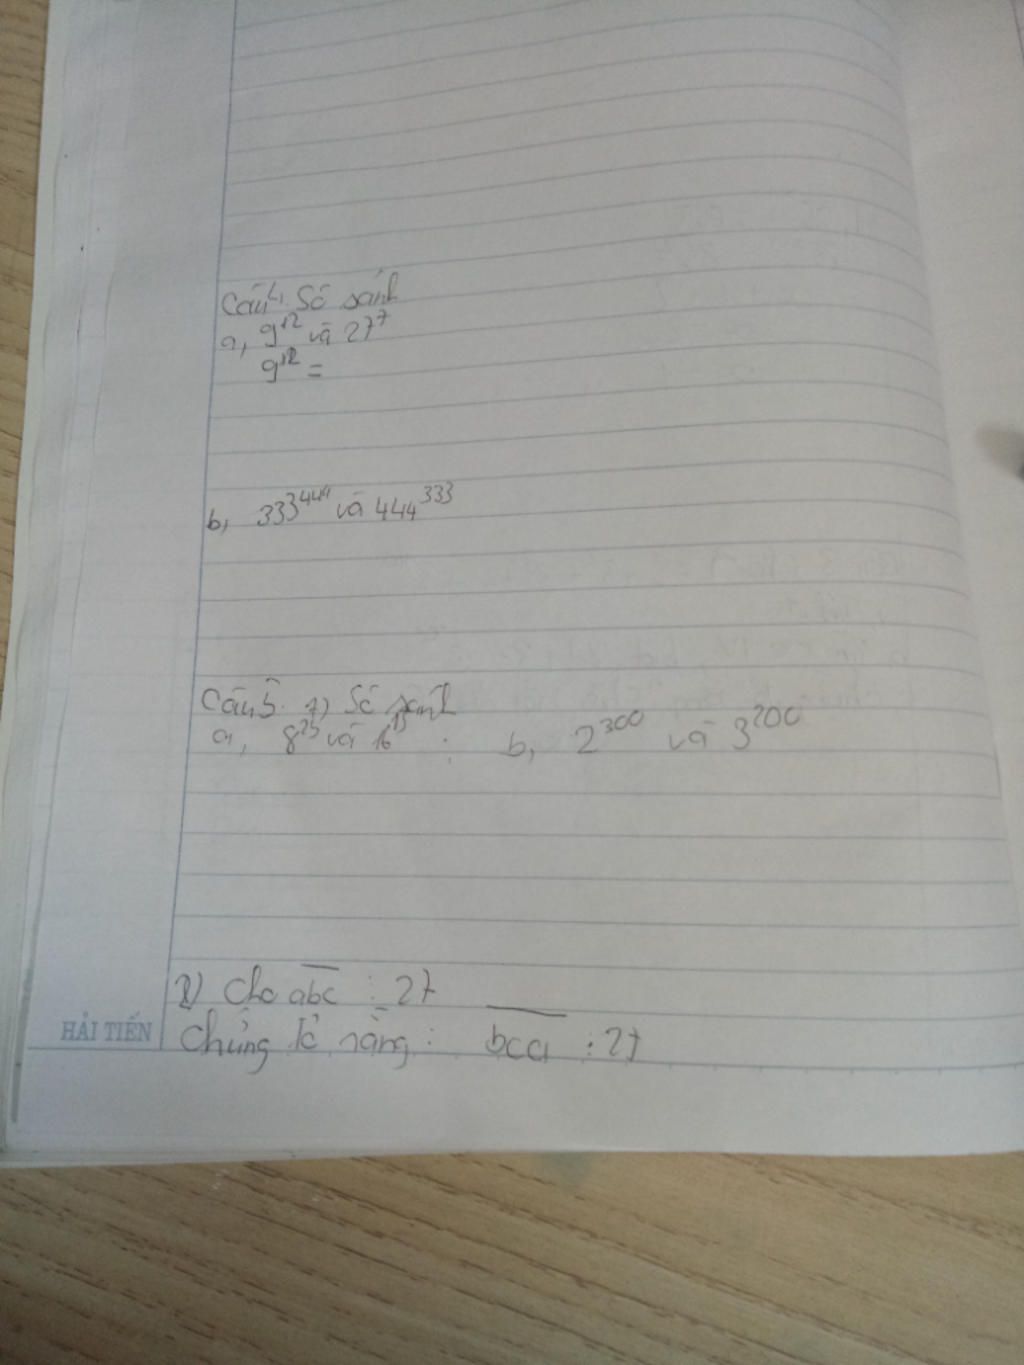 Câu 4. Số sánh
a, 9¹² và 27⁷
9¹² =
b, 333⁴⁴⁴ và 444³³³
Câu 5. 1) Số sánh
a, 8²⁵ và 16¹⁹ ; b, 2³⁰⁰ và 3²⁰⁰
2) Cho abc ⋮ 27
Chứng tỏ rằng: bca ⋮ 27
HẢI TIẾN